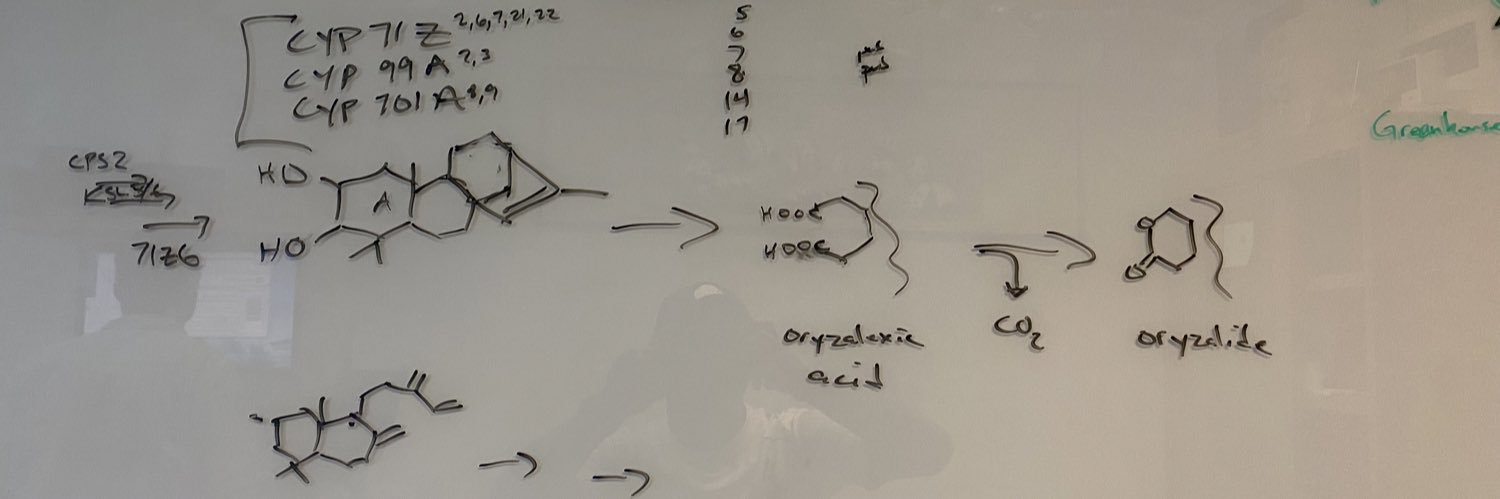 CYP 71 Z 2,6,7,21,22
CYP 99 A 2,3
CYP 701 A 8,9
5
6
7
8
14
17
Greenhouse
CPS2
71Z6
HO
HO
A
HOOC
HOOC
CO2
O
O
oryzalexic
acid
oryzalide